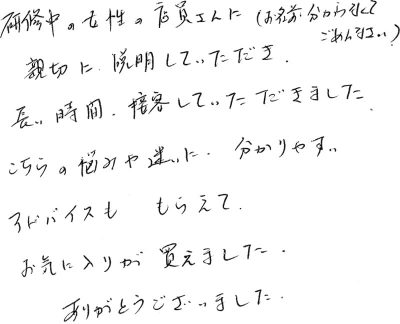 研修中の女性の店員さんに(お名前分からなくて
ごめんなさい)
親切に、説明していただき、
長い時間、接客していただきました。
こちらの悩みや迷いに、分かりやすい
アドバイスも もらえて、
お気に入りが 買えました。
ありがとうございました。